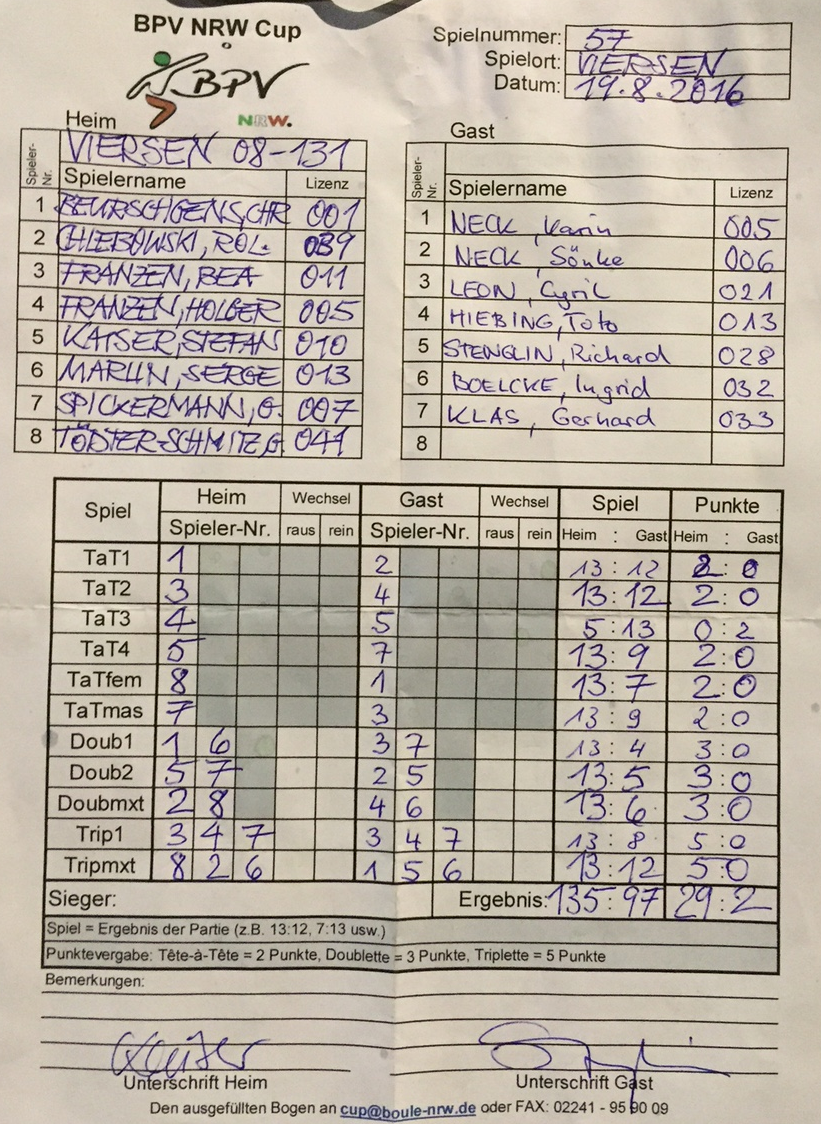 BPV NRW Cup
BPV
NRW.
Spielnummer: 57
Spielort: VIERSEN
Datum: 19.8.2016
Heim
Spieler-Nr.
VIERSEN 08-131
Spielername Lizenz
1 BEURSCHGENS,CHR 001
2 CHLEBOWSKI, ROL. 039
3 FRANZEN, BEA 011
4 FRANZEN, HOLGER 005
5 KAISER, STEFAN 010
6 MARLIN, SERGE 013
7 SPICKERMANN, G. 007
8 TÖDTER-SCHMITZ G. 041
Gast
Spieler-Nr.
Spielername Lizenz
1 NECK, Karin 005
2 NECK, Sönke 006
3 LEON, Cyril 021
4 HIEBING, Toto 013
5 STENGLIN, Richard 028
6 BOELCKE, Ingrid 032
7 KLAS, Gerhard 033
8
Spiel Heim Wechsel Gast Wechsel Spiel Punkte
Spieler-Nr. raus rein Spieler-Nr. raus rein Heim : Gast Heim : Gast
TaT1 1 2 13:12 2:0
TaT2 3 4 13:12 2:0
TaT3 4 5 5:13 0:2
TaT4 5 7 13:9 2:0
TaTfem 8 1 13:7 2:0
TaTmas 7 3 13:9 2:0
Doub1 1 6 3 7 13:4 3:0
Doub2 5 7 2 5 13:5 3:0
Doubmxt 2 8 4 6 13:6 3:0
Trip1 3 4 7 3 4 7 13:8 5:0
Tripmxt 8 2 6 1 5 6 13:12 5:0
Sieger: Ergebnis: 135:97 29:2
Spiel = Ergebnis der Partie (z.B. 13:12, 7:13 usw.)
Punktevergabe: Tête-à-Tête = 2 Punkte, Doublette = 3 Punkte, Triplette = 5 Punkte
Bemerkungen:
Unterschrift Heim
Unterschrift Gast
Den ausgefüllten Bogen an cup@boule-nrw.de oder FAX: 02241 - 95 90 09